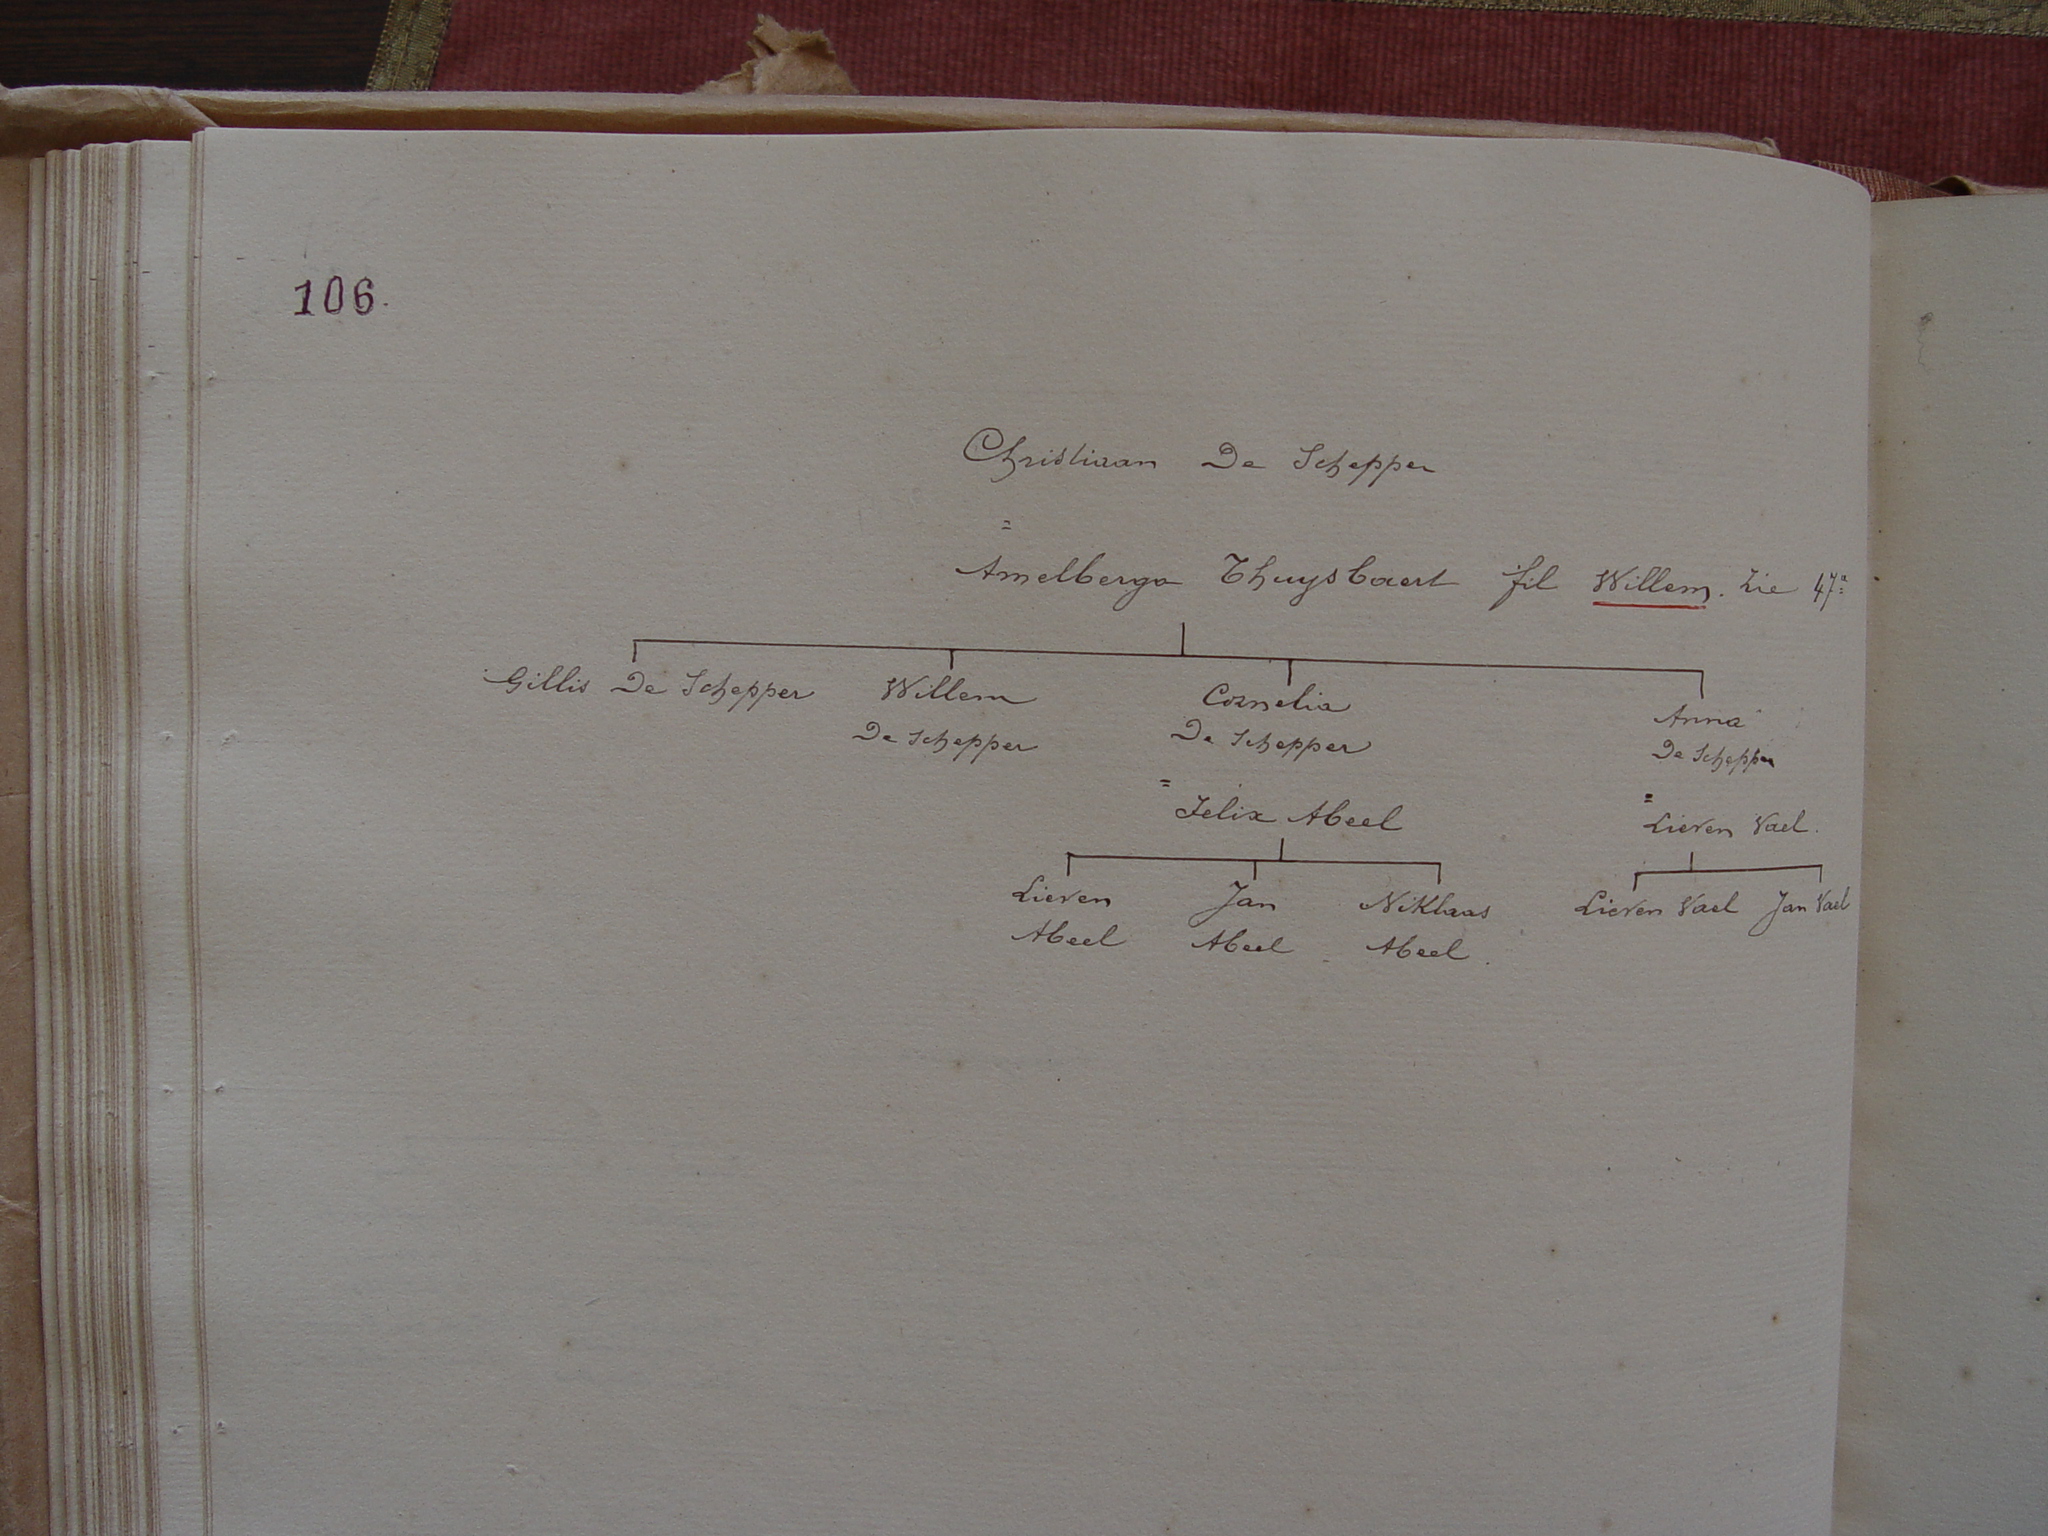 106.
Christiaan De Schepper
=
Amelberga Thuysbaert fil Willem. Zie 47a
Gillis De Schepper Willem Cornelia Anna
De Schepper De Schepper De Schepper
= =
Felix Abeel Lieven Vael.
Lieven Jan Niklaas Lieven Vael Jan Vael
Abeel Abeel Abeel.